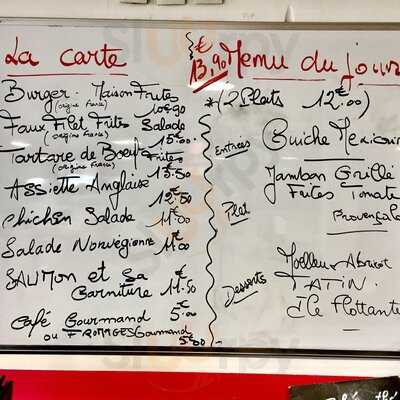 La carte
Burger Maison Frites
(origine France) 10€90
Faux Filet Frites Salade
(origine France) 15€00
Tartare de Boeuf Frites
(origine France) 13€50
Assiette Anglaise
12€50
Chicken Salade 11€00
Salade Norvégienne 11€00
SAUMON et Sa
Garniture 11€50
Café Gourmand 5€00
ou FROMAGES Gourmand 5€00
€ 13,90 Menu du jour
*(2 Plats 12€00)
Entrées Quiche Mexicain
Jambon Grillé
Frites Tomate
Plat Provençale
Moelleux Abricot
Desserts TATIN
Ile Flottante